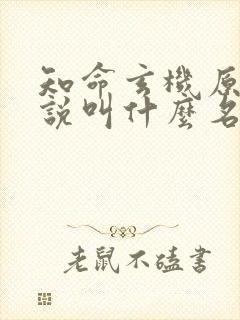 知命玄機原
說叫什麼名
老鼠不磕書